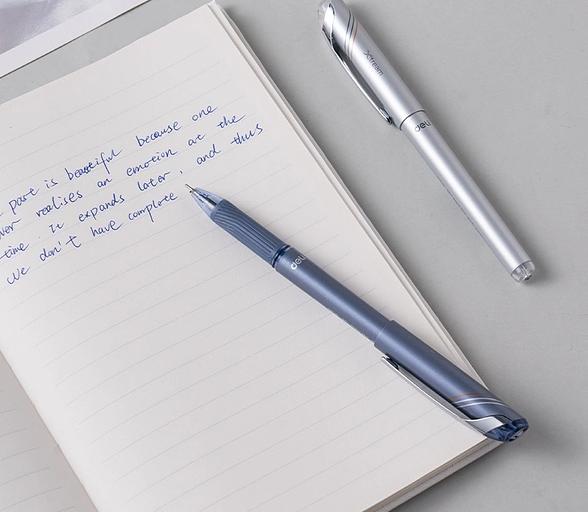 part is beautiful because one
ver realises an emotion at the
time. It expands later, and thus
We don't have complete
deli
Xtream
deli